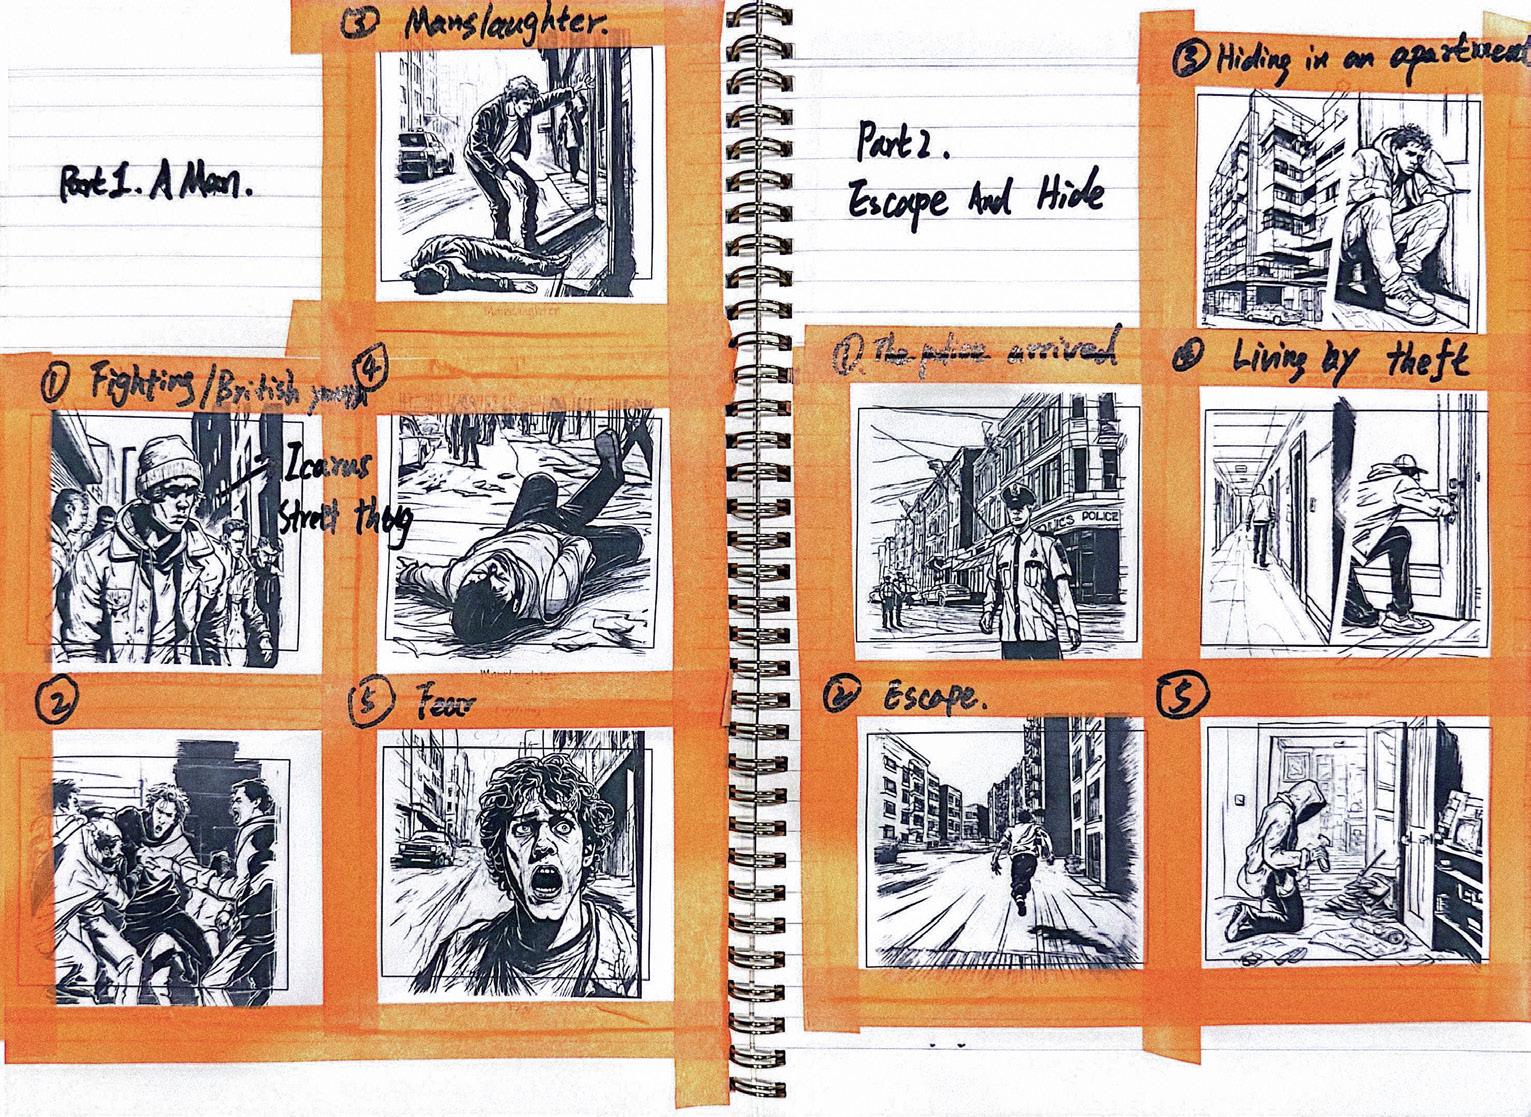 Part 1. A Man.
③ Manslaughter.
Manslaughter
① Fighting/British youth
Icarus
Street thug
④
②
⑤ Fear
Part 2.
Escape And Hide
③ Hiding in an apartment
① The police arrived
POLICE
④ Living by theft
② Escape.
⑤